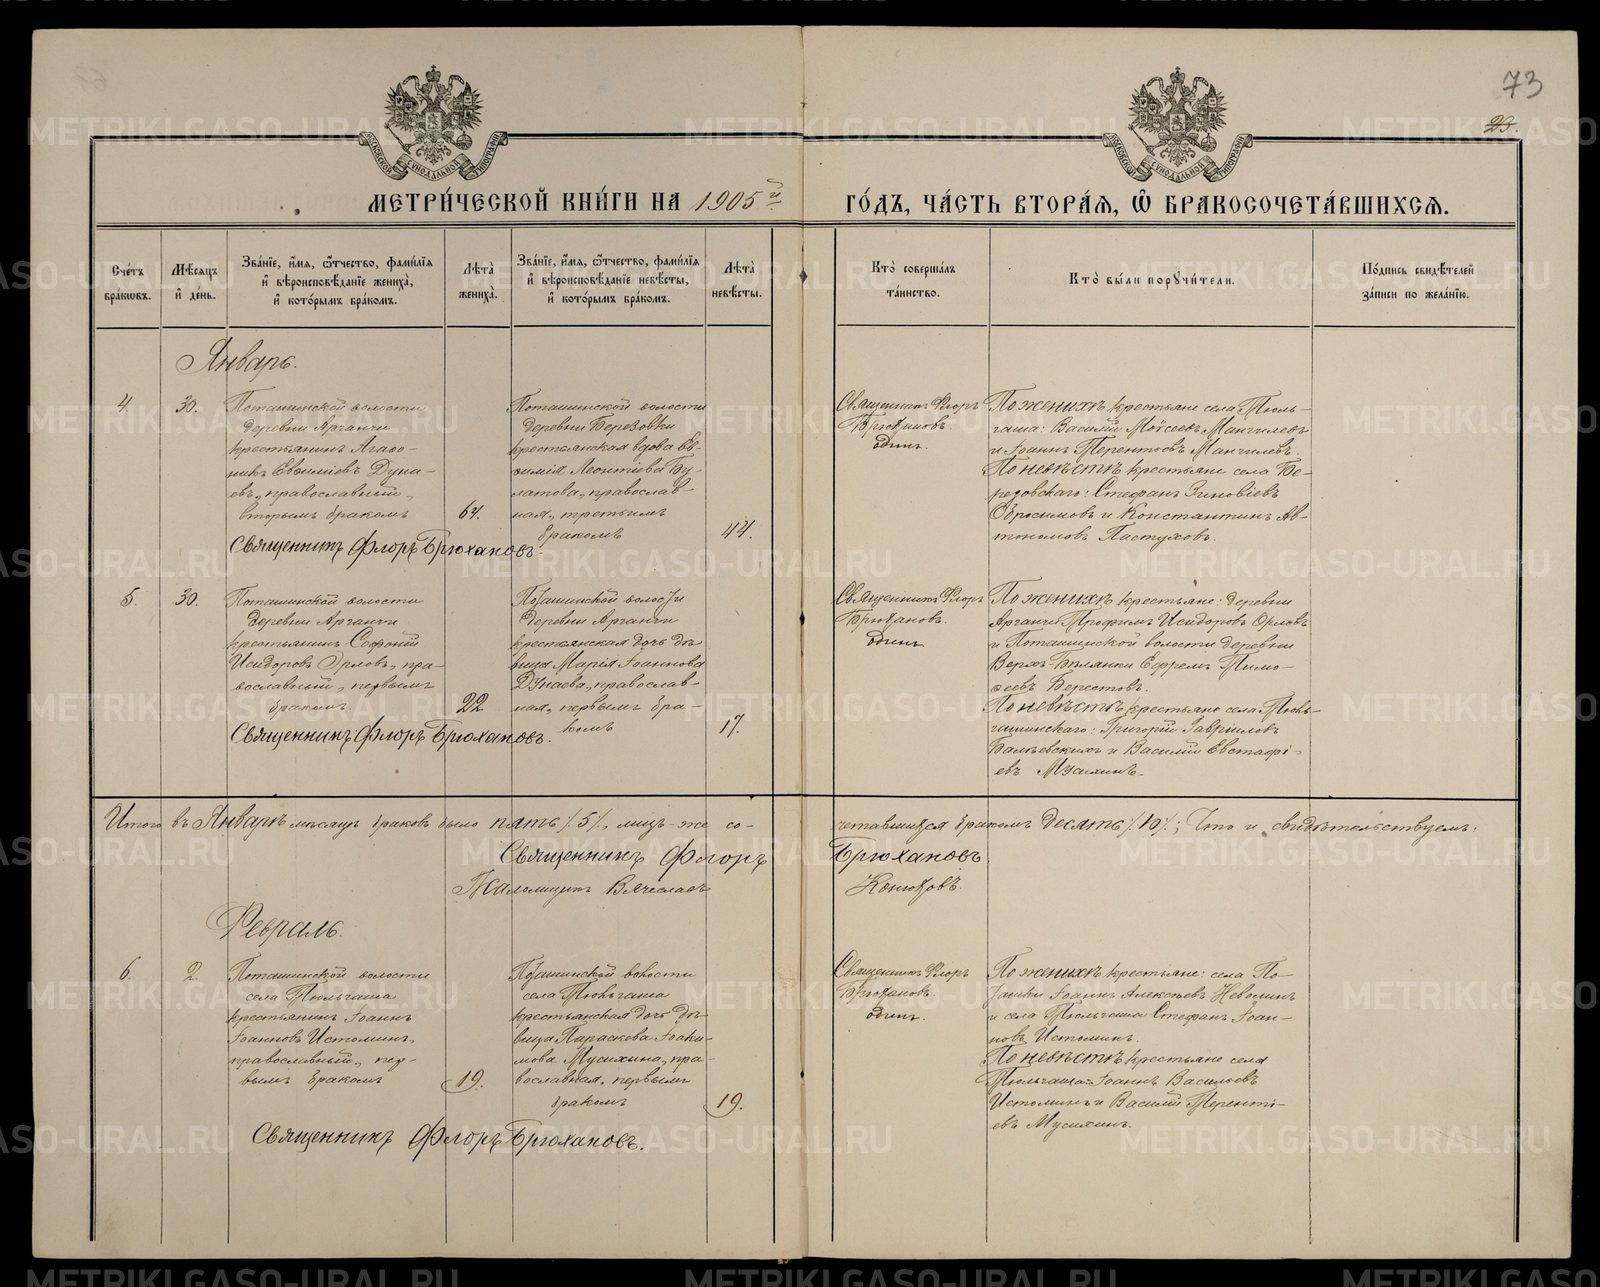 73
23.
МОСКОВСКОЙ СѴНОДАЛЬНОЙ ТИПОГРАФІИ
МОСКОВСКОЙ СѴНОДАЛЬНОЙ ТИПОГРАФІИ
МЕТРИ́ЧЕСКОЙ КНИ́ГИ НА 1905й ГО́ДЪ, ЧА́СТЬ ВТОРА́Я, Ѽ БРАКОСОЧЕТА́ВШИХСЯ.
Сче́тъ бра́ковъ.
Мѣ́сяцъ и҆ де́нь.
Зва́нїе, и҆́мя, ѻ҆́тчество, фами́лїя
и҆ вѣроисповѣ́данїе жениха̀,
и҆ кото́рымъ бра́комъ.
Лѣта̀ жениха̀.
Зва́нїе, и҆́мя, ѻ҆́тчество, фами́лїя
и҆ вѣроисповѣ́данїе невѣ́сты,
и҆ кото́рымъ бра́комъ.
Лѣта̀ невѣ́сты.
Кто̀ соверша́лъ
та́инство.
Кто̀ бы́ли порꙋчи́тели.
По́дпись свидѣ́телей
за́писи по жела́нїю.
Январь.
4.
30.
Поташинской волости
деревни Арганчи
крестьянинъ Агафо-
никъ Евфиміевъ Дуна-
евъ, православный,
вторымъ бракомъ
64.
Поташинской волости
деревни Березовки
крестьянская вдова Ев-
фимія Леонтіева Бу-
латова, православ-
ная, третьимъ
бракомъ
44.
Священникъ Флоръ
Брюхановъ
одинъ.
По женихѣ крестьяне села Тюль-
гаша: Василій Моѵсеевъ Мангилевъ
и Іоаннъ Терентіевъ Мангилевъ.
По невѣстѣ крестьяне села Бе-
резовскаго: Стефанъ Зиновіевъ
Обросимовъ и Константинъ Ав-
тономовъ Пастуховъ.
Священникъ Флоръ Брюхановъ.
5.
30.
Поташинской волости
деревни Арганчи
крестьянинъ Софоній
Исидоровъ Орловъ, пра-
вославный, первымъ
бракомъ.
22
Поташинской волости
деревни Арганчи
крестьянская дочь дѣ-
вица Марія Іоаннова
Дунаева, православ-
ная, первымъ бра-
комъ
17.
Священникъ Флоръ
Брюхановъ.
одинъ
По женихѣ крестьяне: деревни
Арганчи Трофимъ Исидоровъ Орловъ
и Поташинской волости деревни
Верхъ-Бѣлянки Ефремъ Тимо-
феевъ Берестовъ.
По невѣстѣ крестьяне села Тюль-
гашинскаго: Григорій Гавріиловъ
и Василій Евстафі-
евъ Мусихинъ.
Священникъ Флоръ Брюхановъ.
Итого въ Январѣ мѣсяцѣ браковъ было пять /5/, лицъ-же со-
четавшихся бракомъ десять /10/; Что и свидѣтельствуемъ:
Священникъ Флоръ Брюхановъ.
Псаломщикъ Вячеславъ Конюховъ.
Февраль.
6.
2.
Поташинской волости
села Тюльгаша
крестьянинъ Іоаннъ
Іоанновъ Истоминъ,
православный, пер-
вымъ бракомъ
19.
Поташинской волости
села Тюльгаша
крестьянская дочь дѣ-
вица Параскева Іоаки-
мова Мусихина, пра-
вославная, первымъ
бракомъ
19.
Священникъ Флоръ
Брюхановъ.
одинъ.
По женихѣ крестьяне: села По-
ташки Іоаннъ Алексѣевъ Неволинъ
и села Тюльгаша Стефанъ Іоан-
новъ Истоминъ.
По невѣстѣ крестьяне села
Тюльгаша: Іоаннъ Васильевъ
Истоминъ и Василій Теренті-
евъ Мусихинъ.
Священникъ Флоръ Брюхановъ.
METRIKI.GASO-URAL.RU